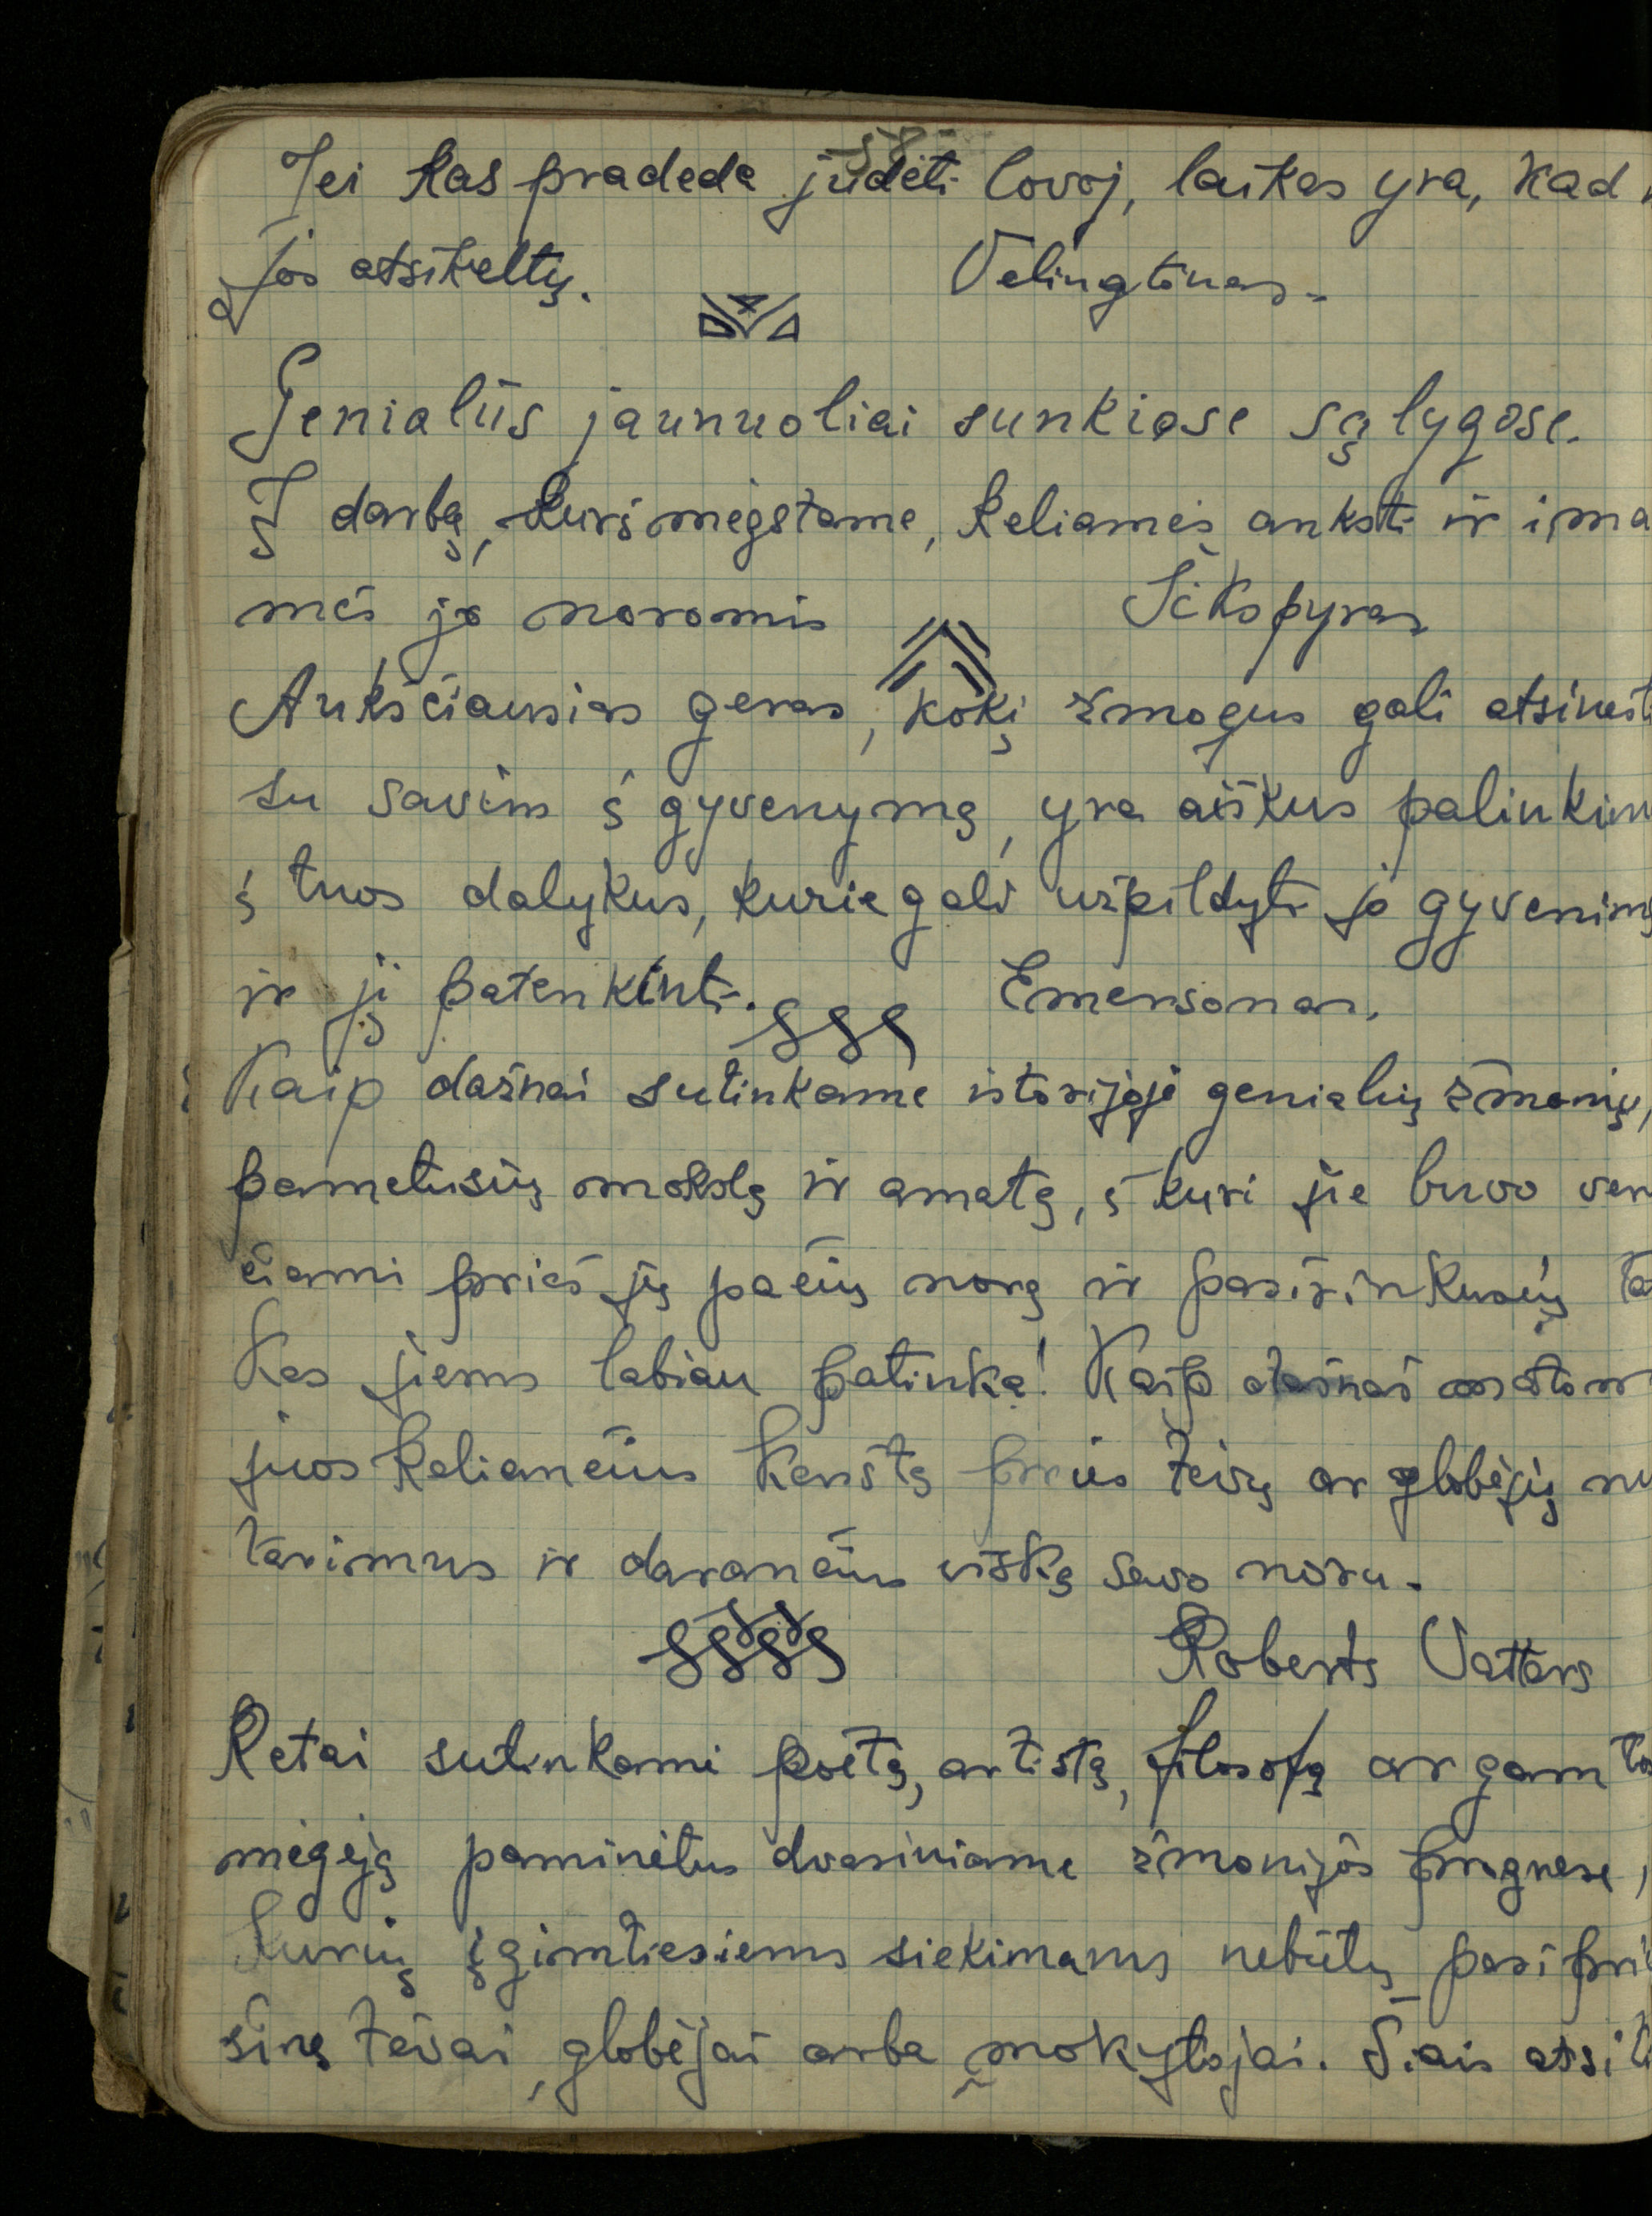 Jei kas pradeda judėti lovoj, laikas yra, kad
jos atsikeltų. Velingtonas.
Genialūs jaunuoliai sunkiose sąlygose.
Į darbą, kurį mėgstame, keliamės anksti ir ima
mės jo noromis Šekspyras
Aukščiausias geras, kokį žmogus gali atsinešti
su savim į gyvenymą, yra aiškus palinkim
į tuos dalykus, kurie gali užpildyti jo gyvenimą
ir jį patenkinti. Emersonas.
Kaip dažnai sutinkame istorijoje genialių žmonių,
pametusių mokslą ir amatą, į kurį jie buvo ver
čiami prieš jų pačių norą ir pasirinkusių ta
kas jiems labiau patinka! Kaip dažnai matom
juos keliančius kerštą prieš tėvų ar globėjų nu
tarimus ir darančius viską savo noru.
Roberts Vaters
Retai sutinkami poetą, artistą, filosofą ar gamtos
mėgėją paminėtus dvasiniame žmonijos progrese,
kurių įgimtiesiems siekimams nebūtų pasiprie
šinę tėvai, globėjai arba mokytojai. Šiais atsiti